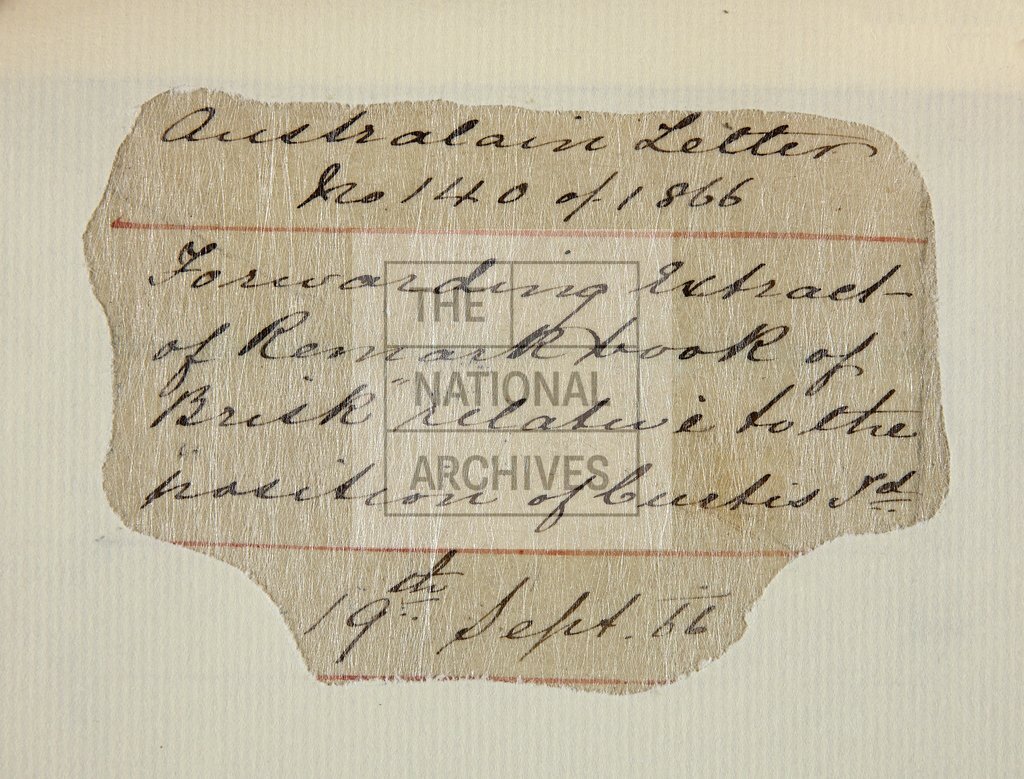 Australain Letter
No 140 of 1866
Forwarding Extract
of Remark book of
"Brisk" relative to the
position of Curtis Id
19th Sept. 66
THE
NATIONAL
ARCHIVES